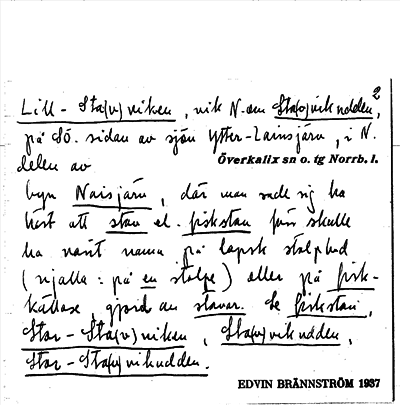 2
Lill-Sta(v)viken, vik N. om Sta(v)vikudden,
på SÖ. sidan av sjön Ytter-Lainsjärv, i N.
delen av Överkalix sn o. tg Norrb. l.
byn Naisjärv, där man sade sig ha
hört att stav el. fiskstav förr skulle
ha varit namn på lapsk stolpbod
(njalla: på en stolpe) eller på fisk-
källare, gjord av stavar. Se Fiskstav,
Stor-Sta(v)viken, Sta(v)vikudden,
Stor-Sta(v)vikudden.
EDVIN BRÄNNSTRÖM 1937